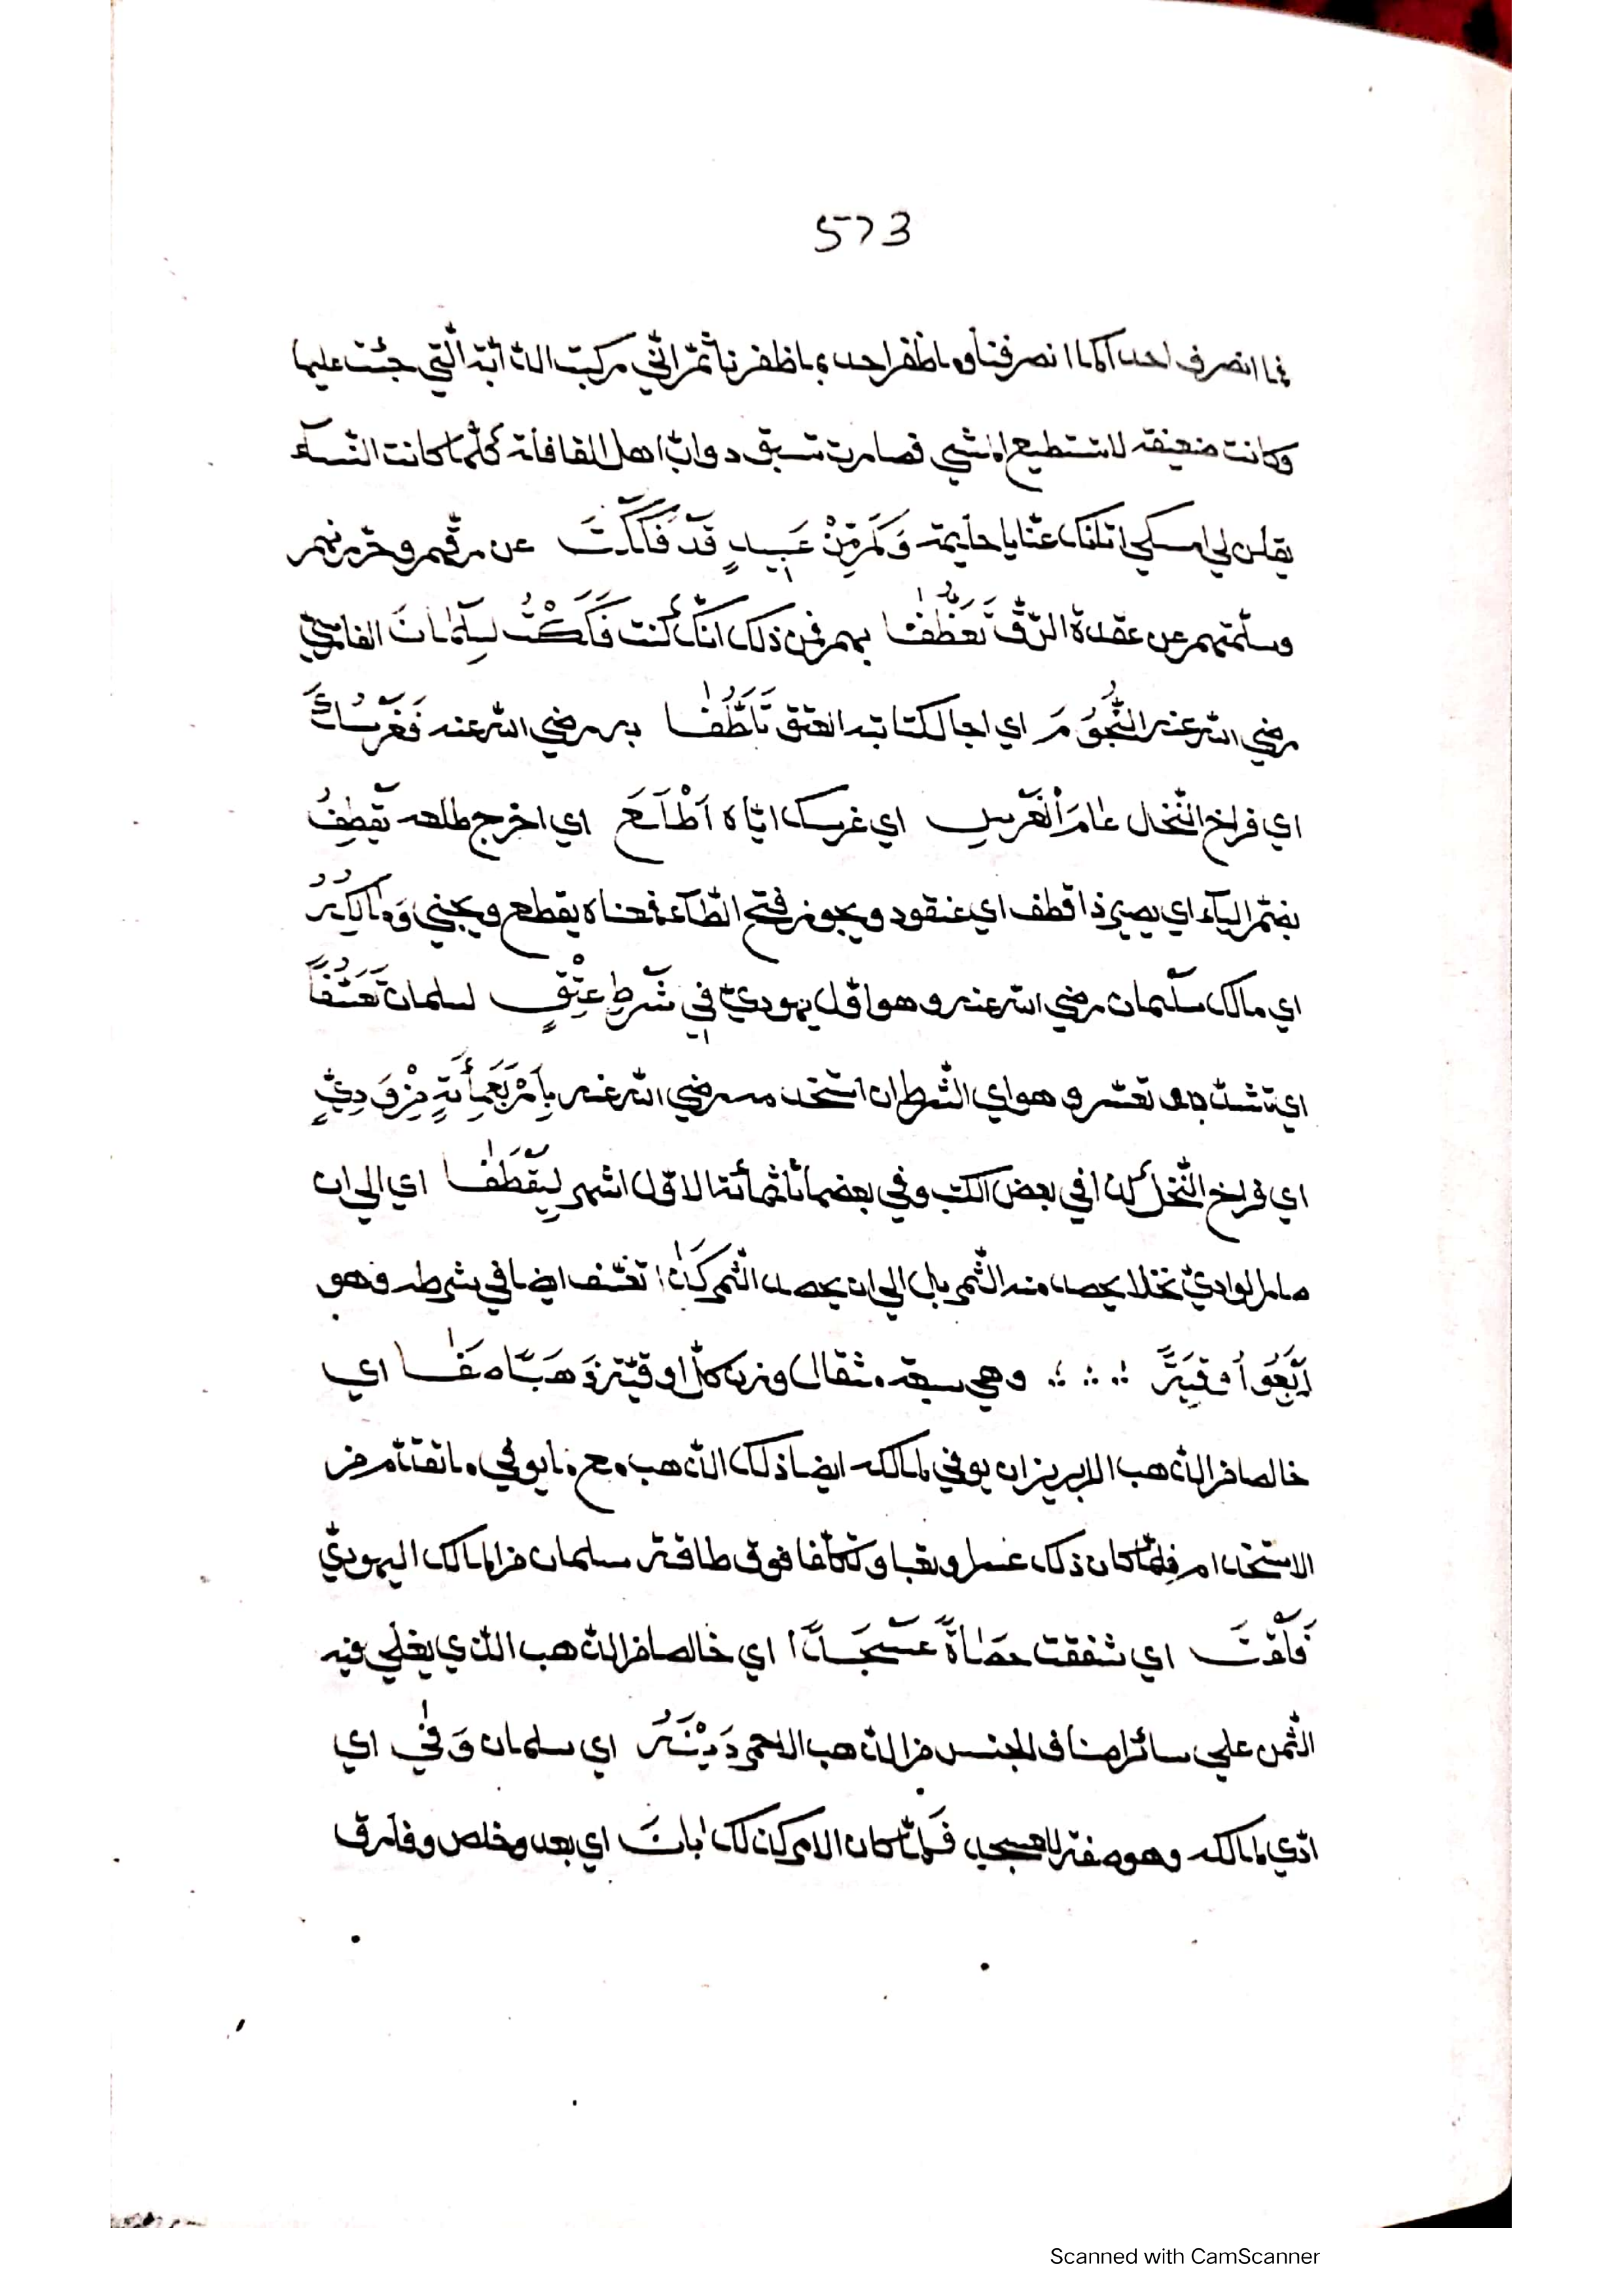 573
فما انصرف احد كما انصرفنا وما ظفر احد بما ظفرنا ثمّ انّي ركبت الدّابّة الّتي جئت عليها
وكانت ضعيفة لا تستطيع المشي فصارت تسبق دوابّ اهل القافلة كلّها كانت النّساء
يقلن لي امسكي اتانك عنّا يا حليمة وَكَمْ مِّنْ عَبِيدٍ قَدْ فَكَكْتَ عن رقّهم وخرّرتهم
وسلّمتهم عن عقدة الرّقّ تَعَطُّفًا بهم فمن ذلك انّك كنت فَكَكْتُ لِسَلْمَانَ الفارسيّ
رضي الله عنه النُّجُوْمَ اي اجال كتابته العتق تَلَطُّفًا به رضي الله عنه فَغَرْسُكَ
اي فراخ النّخل عَامَ الْغَرْسِ اي غرسك ايّاه اَطْلَعَ اي اخرج طلعه يُقْطِفُ
بضمّ الياء اي يصير ذا قطف اي عنقود ويجوز فتح الطّاء فمعناه يقطع ويجنى وَمَالِكُهُ
اي مالك سلمان رضي الله عنه وهو اوّل يهوديّ فِي شَرْطِ عِتْقٍ لسلمان تَعَسُّفًا
اي تشدّد وتعسّر وهو اي الشّرط ان استخدمه رضي الله عنه بِاَرْبَعِمِأَئَةٍ مِنْ وَدِيٍّ
اي فراخ النّخل كذا في بعض الكتب وفي بعضها ثلثمائة الاوّل اشهر لِيُقْطَفَا اي الى ان
صار الوادي نخلا يحصل منه الثّمر بل الى ان يحصل الثّمر كَذَا تعسّف ايضا في شرطه وهو
اَرْبَعُوْ اُوْقِيَةً وهي سبعة مثقال وزن كلّ اوقيّة ذَهَبًا صَفَا اي
خالصا من الذّهب الابريز ان يوفي لمالكه ايضا ذلك الذّهب مع ما يوفي ما تقدّم من
الاستخدام فلمّا كان ذلك عسرا وتعبا وتكلّفا فوق طاقة سلمان من المالك اليهوديّ
فَلَقْتَ اي شققت حَصَاةً عَسْجَدًا اي خالصا من الذّهب الّذي يغلى فيه
الثّمن على سائر اصناف الجنس من الذّهب الاحمر دَيْنَهُ اي سلمان وَفَى اي
ادّي لمالكه وهو صفة للعسجد فَلَمَّا كان الامر كذلك بَانَ اي بعد وخلص وفارق
Scanned with CamScanner